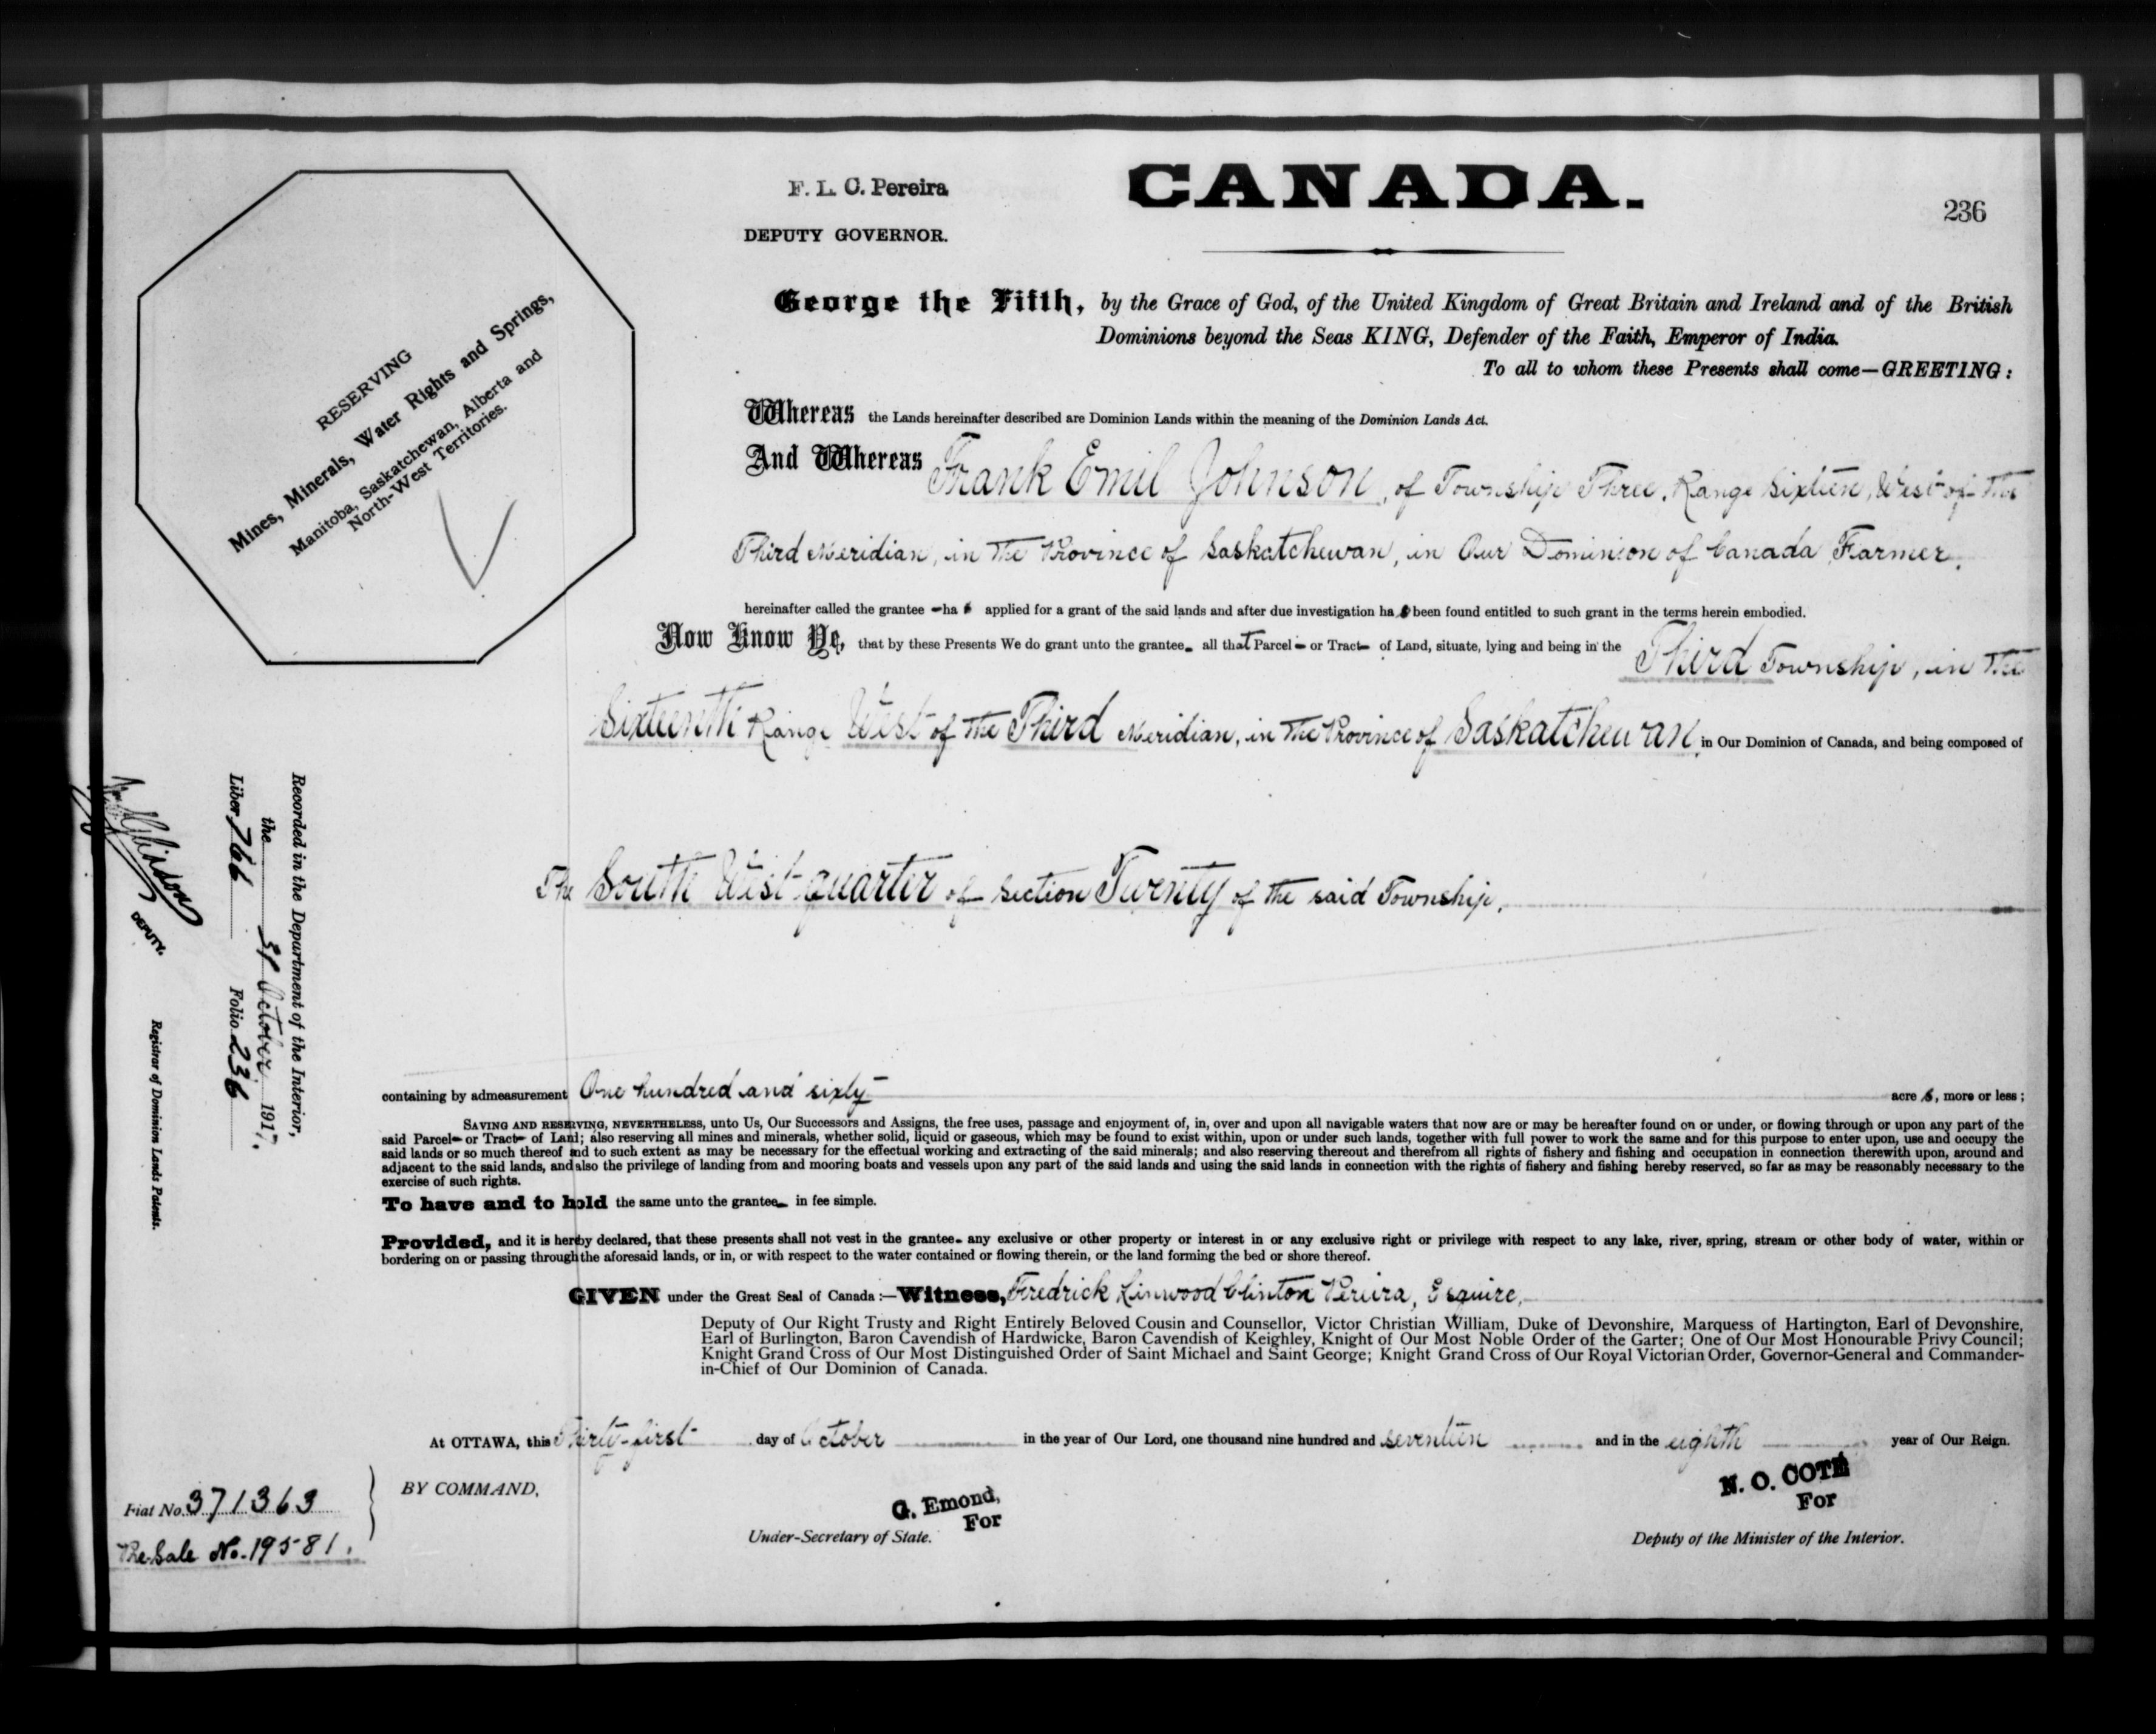 F. L. C. Pereira
DEPUTY GOVERNOR.
CANADA.
236
RESERVING
Mines, Minerals, Water Rights and Springs,
Manitoba, Saskatchewan, Alberta and
North-West Territories.
George the Fifth, by the Grace of God, of the United Kingdom of Great Britain and Ireland and of the British
Dominions beyond the Seas KING, Defender of the Faith, Emperor of India.
To all to whom these Presents shall come—GREETING:
Whereas the Lands hereinafter described are Dominion Lands within the meaning of the Dominion Lands Act.
And Whereas Frank Emil Johnson, of Township Three, Range Sixteen, West of the
Third Meridian, in the Province of Saskatchewan, in Our Dominion of Canada, Farmer,
hereinafter called the grantee ha s applied for a grant of the said lands and after due investigation ha s been found entitled to such grant in the terms herein embodied.
Now Know Ye, that by these Presents We do grant unto the grantee all that Parcel or Tract of Land, situate, lying and being in the Third Township, in the
Sixteenth Range West of the Third Meridian, in the Province of Saskatchewan, in Our Dominion of Canada, and being composed of
The South West quarter of Section Twenty of the said Township,
containing by admeasurement One hundred and sixty acre s, more or less;
SAVING AND RESERVING, NEVERTHELESS, unto Us, Our Successors and Assigns, the free uses, passage and enjoyment of, in, over and upon all navigable waters that now are or may be hereafter found on or under, or flowing through or upon any part of the
said Parcel or Tract of Land; also reserving all mines and minerals, whether solid, liquid or gaseous, which may be found to exist within, upon or under such lands, together with full power to work the same and for this purpose to enter upon, use and occupy the
said lands or so much thereof and to such extent as may be necessary for the effectual working and extracting of the said minerals; and also reserving thereout and therefrom all rights of fishery and fishing and occupation in connection therewith upon, around and
adjacent to the said lands, and also the privilege of landing from and mooring boats and vessels upon any part of the said lands and using the said lands in connection with the rights of fishery and fishing hereby reserved, so far as may be reasonably necessary to the
exercise of such rights.
To have and to hold the same unto the grantee in fee simple.
Provided, and it is hereby declared, that these presents shall not vest in the grantee any exclusive or other property or interest in or any exclusive right or privilege with respect to any lake, river, spring, stream or other body of water, within or
bordering on or passing through the aforesaid lands, or in, or with respect to the water contained or flowing therein, or the land forming the bed or shore thereof.
GIVEN under the Great Seal of Canada:—Witness, Fredrick Linwood Clinton Pereira, Esquire,
Deputy of Our Right Trusty and Right Entirely Beloved Cousin and Counsellor, Victor Christian William, Duke of Devonshire, Marquess of Hartington, Earl of Devonshire,
Earl of Burlington, Baron Cavendish of Hardwicke, Baron Cavendish of Keighley, Knight of Our Most Noble Order of the Garter; One of Our Most Honourable Privy Council;
Knight Grand Cross of Our Most Distinguished Order of Saint Michael and Saint George; Knight Grand Cross of Our Royal Victorian Order, Governor-General and Commander-
in-Chief of Our Dominion of Canada.
At OTTAWA, this Thirty-first day of October in the year of Our Lord, one thousand nine hundred and seventeen and in the eighth year of Our Reign.
BY COMMAND,
G. Emond,
For
Under-Secretary of State.
N. O. COTÉ
For
Deputy of the Minister of the Interior.
Fiat No. 371363
Pre. Sale No. 19581.
Recorded in the Department of the Interior,
the 31 October 1917.
Liber 766 Folio 236
DEPUTY.
Registrar of Dominion Lands Patents.